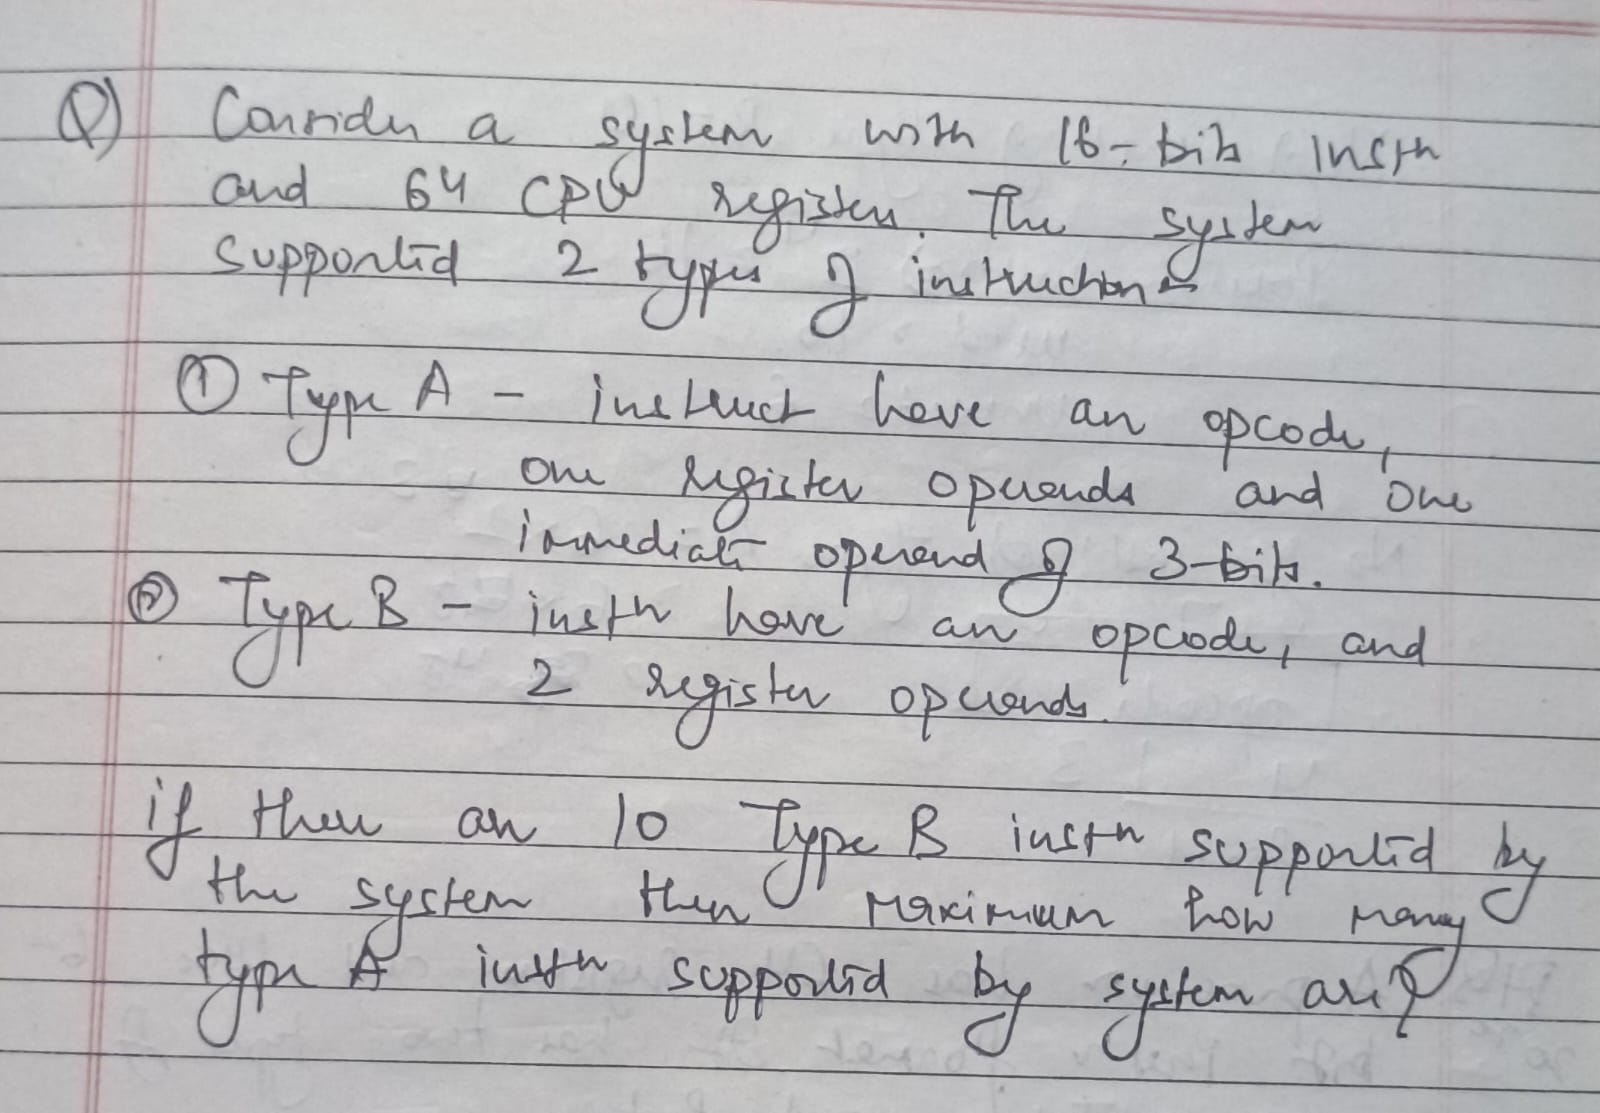 Q) Consider a system with 16-bit instn
and 64 CPU registers. The system
supported 2 types of instructions
① Type A - instruct have an opcode,
one register operands and one
immediate operand of 3-bits.
② Type B - instn have an opcode, and
2 register operands.
if there are 10 Type B instn supported by
the system then maximum how many
type A instn supported by system are?